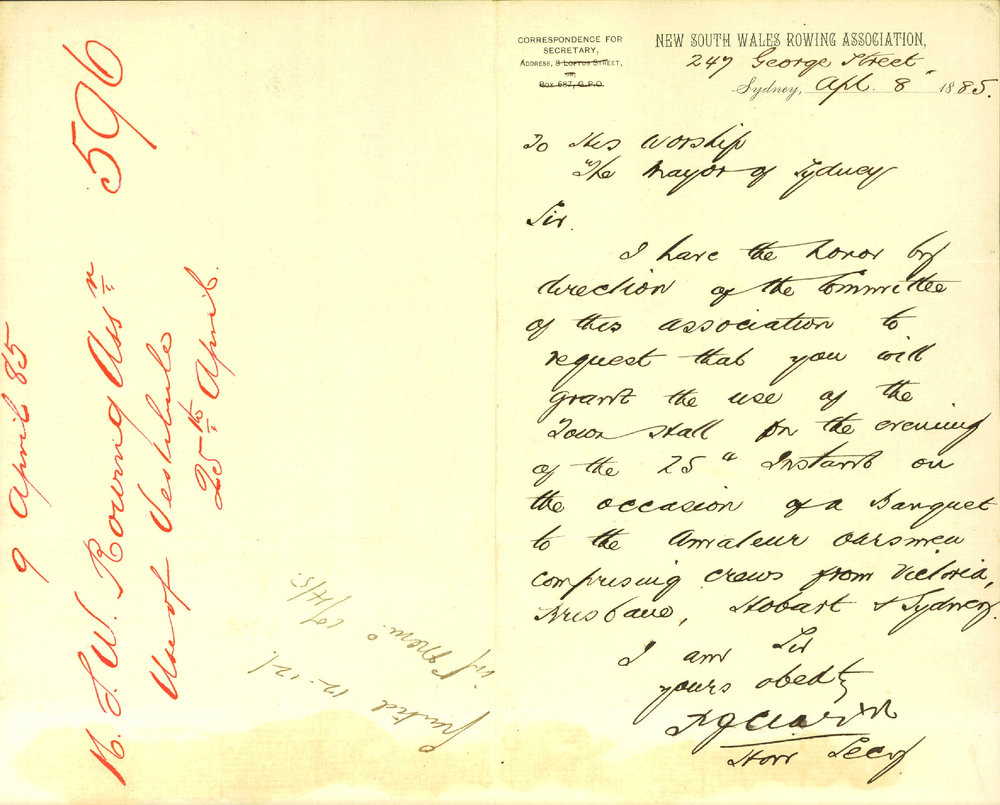 9 April 85
N. S. W. Rowing Assn
596
Use of Vestibule
25th April.
Granted 12.12/
CORRESPONDENCE FOR
SECRETARY,
ADDRESS, 3 LOFTUS STREET,
OR,
BOX 687, G.P.O.
NEW SOUTH WALES ROWING ASSOCIATION,
247 George Street
Sydney, Apl. 8" 1885.
To His Worship
The Mayor of Sydney
Sir.
I have the honor by
direction of the Committee
of this association to
request that you will
grant the use of the
Town Hall on the evening
of the 25" Instant on
the occasion of a Banquet
to the Amateur oarsmen
comprising crews from Victoria,
Brisbane, Hobart & Sydney.
I am Sir
yours obedt
Hon Secy